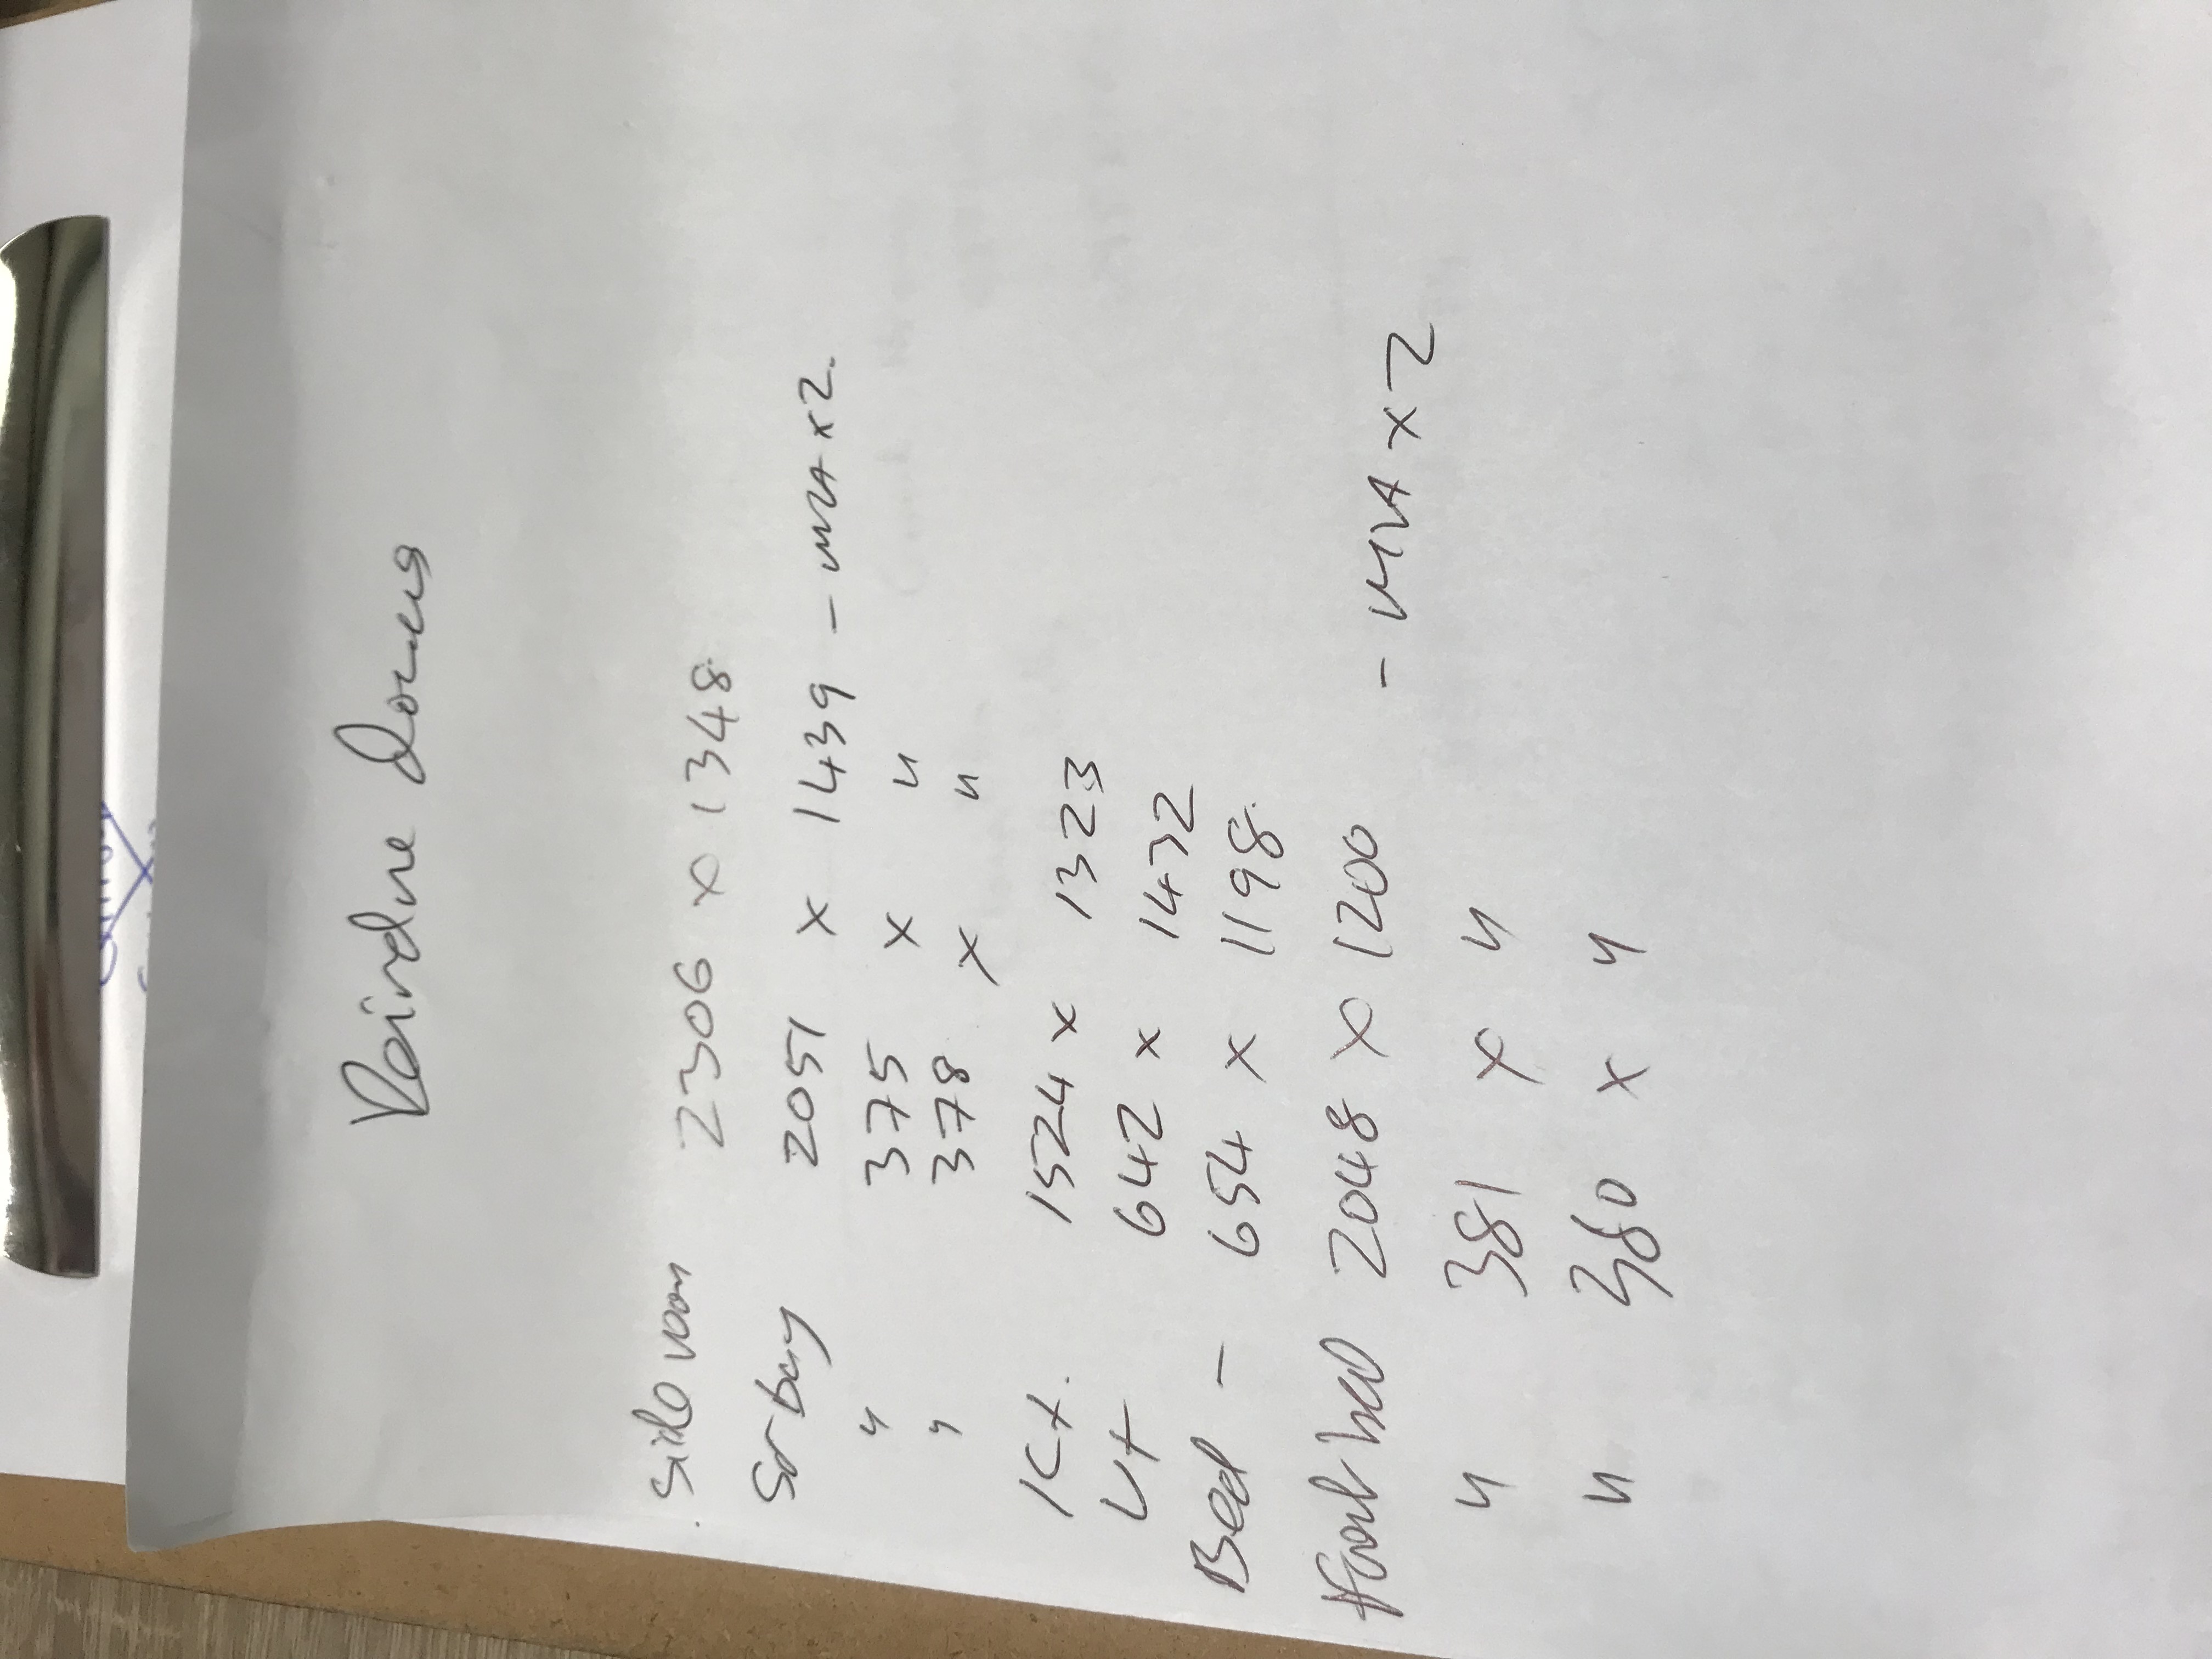 Side van 2306 x 1348
Sr bay 2051 x 1439 -
" 375 x "
" 378 x "
Kt. 1524 x 1323
Ut 642 x 1432
Bed - 654 x 1198
Front bed 2048 x 1200 - x 2
" 381 x "
" 380 x "